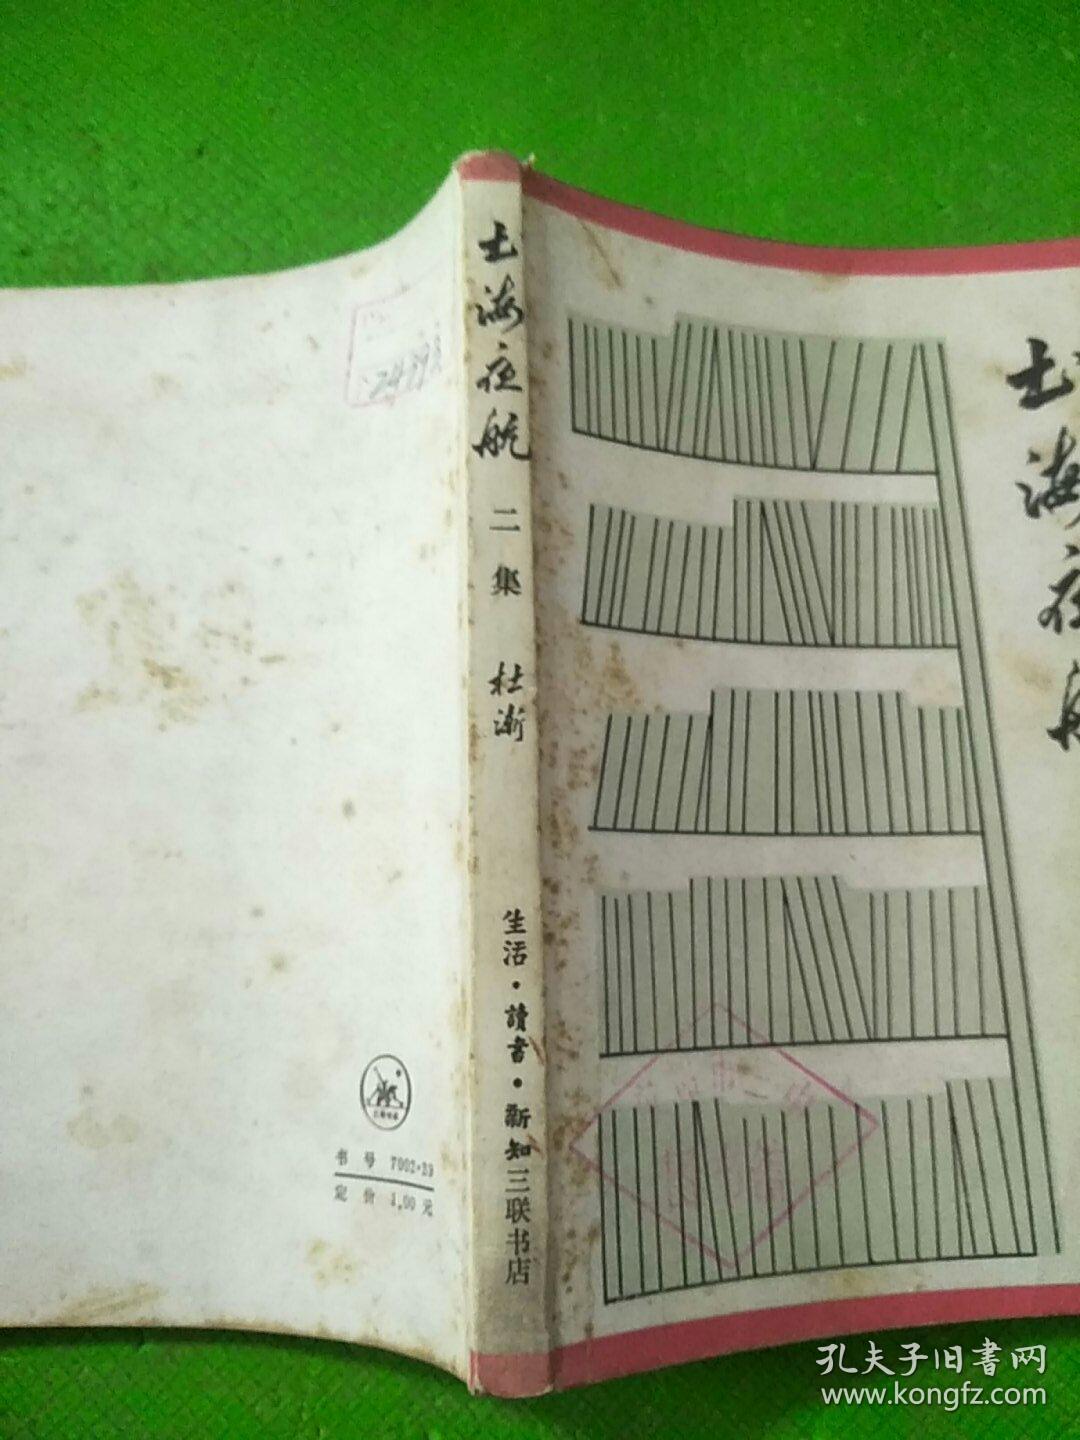 书海夜航
二集
杜渐
生活·讀書·新知三联书店
书海夜航
24398
书号 7002·39
定价 1.00元
孔夫子旧書网
www.kongfz.com